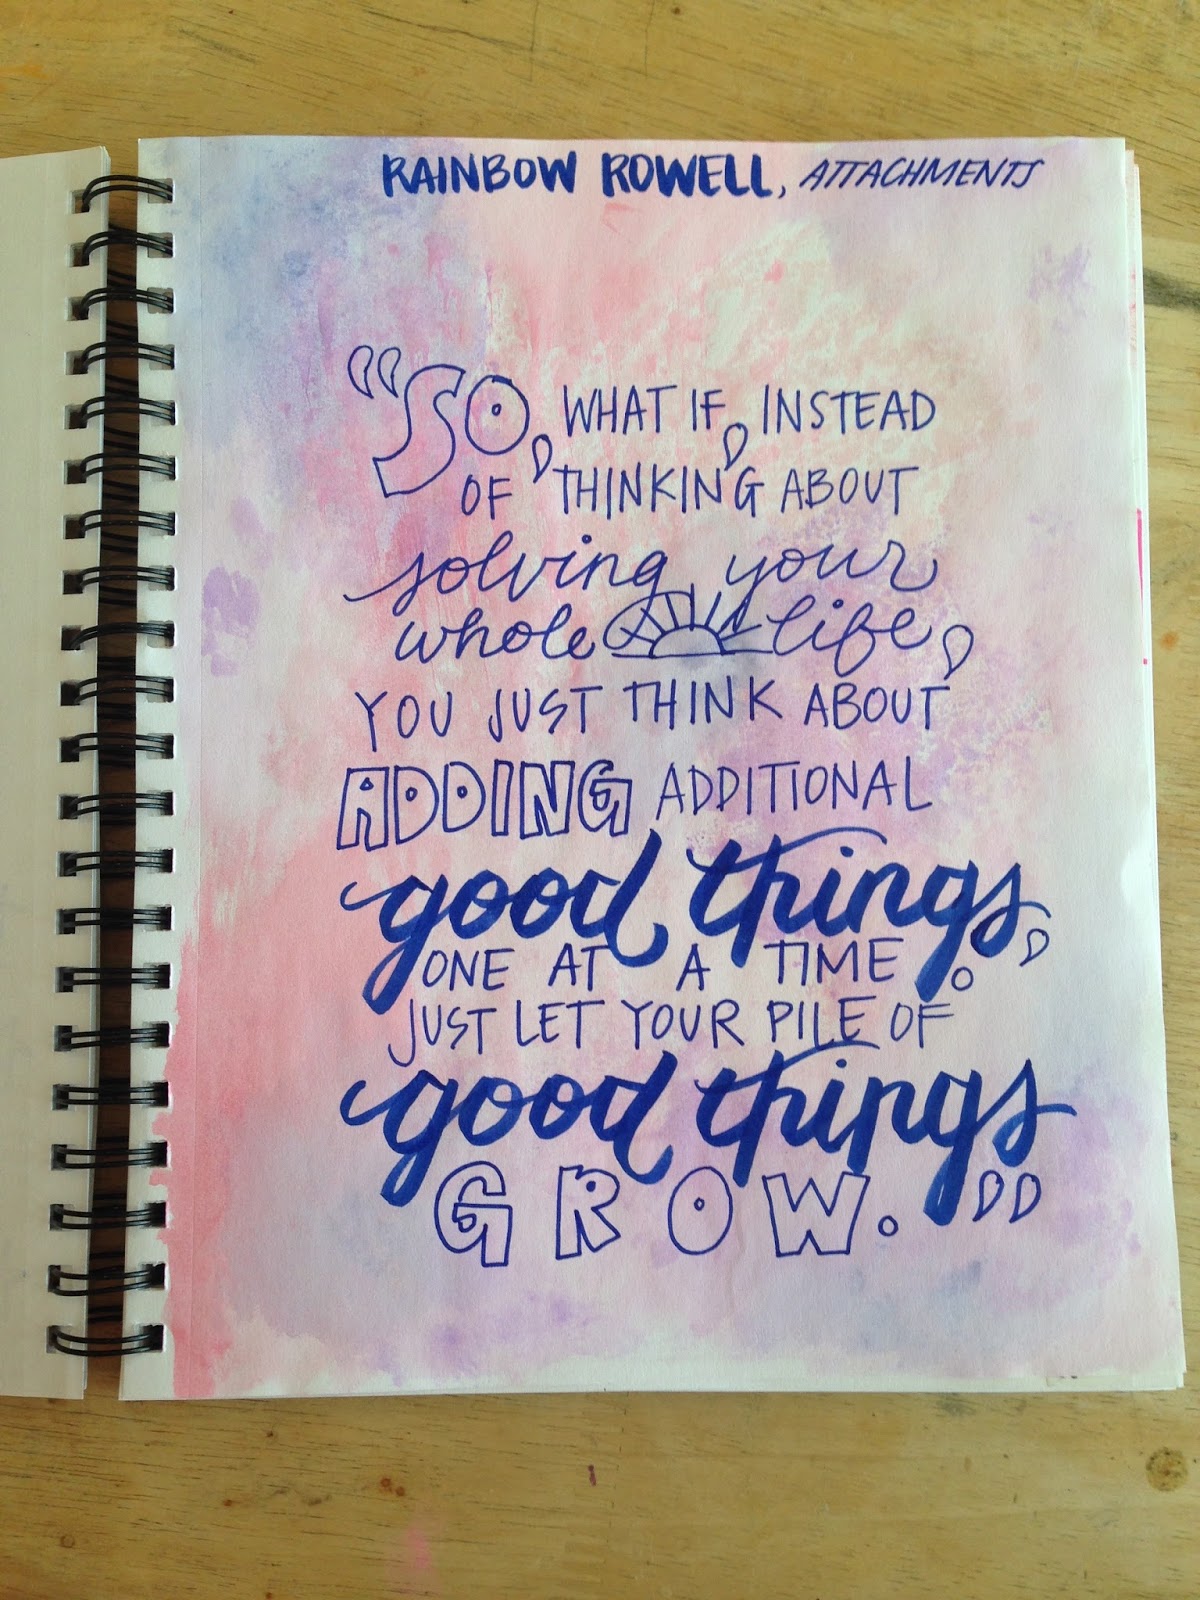 RAINBOW ROWELL, ATTACHMENTS
“SO, WHAT IF, INSTEAD
OF THINKING ABOUT
solving your
whole life,
YOU JUST THINK ABOUT
ADDING ADDITIONAL
good things,
ONE AT A TIME.
JUST LET YOUR PILE OF
good things
GROW.”